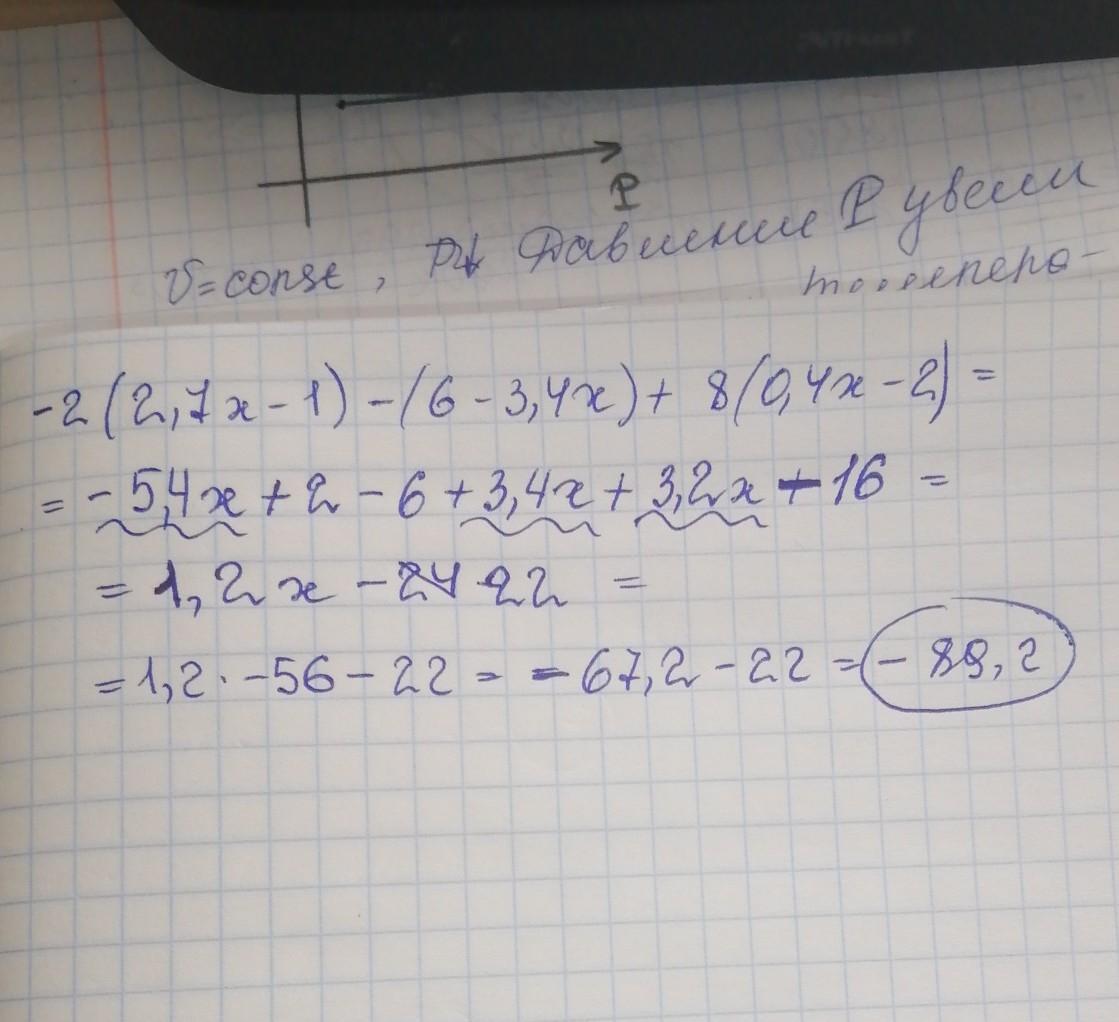 P
V=const, P↓ Давление P увели
-2(2,7x-1)-(6-3,4x)+8(0,4x-2)=
=-5,4x+2-6+3,4x+3,2x-16=
=1,2x-24 22 =
=1,2·-56-22=-67,2-22=-89,2